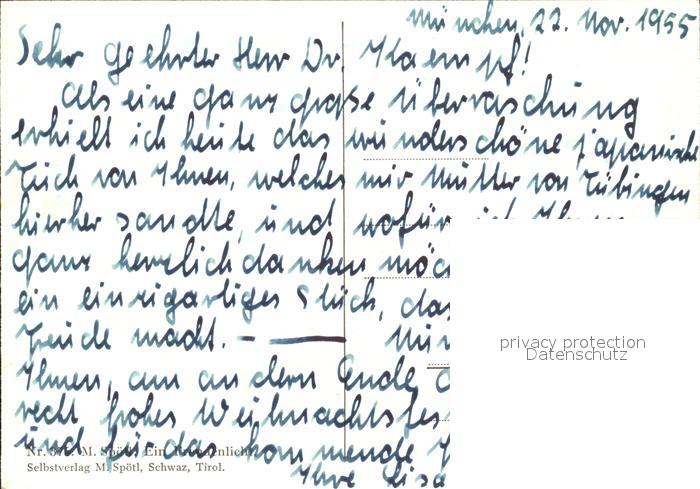 München, 22. Nov. 1955
Sehr geehrter Herr Dr. Kaempf!
Als eine ganz große Überraschung
erhielt ich heute das wunderschöne japanische
Tuch von Ihnen, welches mir Mutter von Tübingen
hierher sandte, und wofür ich Ihnen
ganz herzlich danken möc
ein einzigartiges Stück, das
Freude macht. –
Ihnen, am andern Ende
recht frohes Weihnachtsfes
und für das kommende
Ihre Lisa
Nr. M. Spötl, Ein
Selbstverlag M. Spötl, Schwaz, Tirol.
privacy protection
Datenschutz